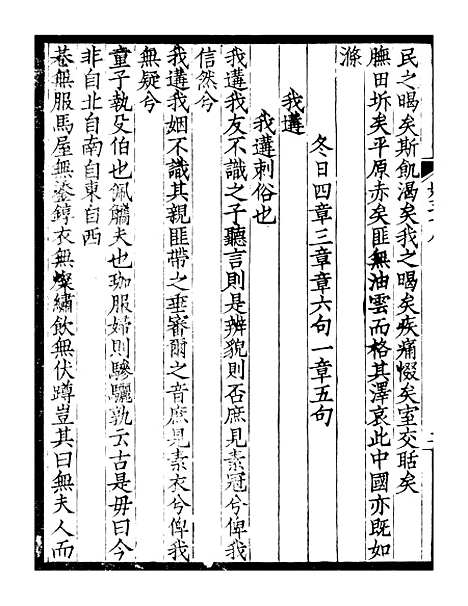 民之暍矣斯飢渴矣我之暍矣疾痛惙矣室交聒矣
膴田坼矣平原赤矣匪無油雲而格其澤哀此中國亦既如
滌
冬日四章三章章六句一章五句
我遘
我遘刺俗也
我遘我友不識之子聽言則是辨貌則否庶見素冠兮俾我
信然兮
我遘我姻不識其親匪帶之垂審爾之音庶見素衣兮俾我
無疑兮
童子執殳伯也佩觿夫也珈服婦則驂驪孰云古是毋曰今
非自北自南自東自西
巷無服馬屋無鎏錞衣無燦繡飲無伏蹲豈其曰無夫人而